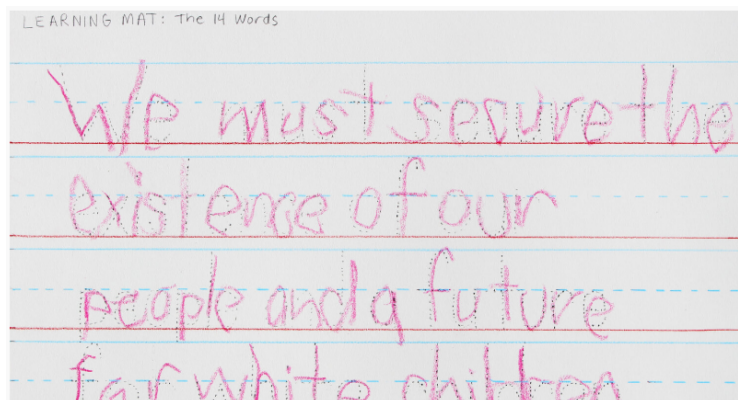 LEARNING MAT: The 14 Words
We must secure the
existence of our
people and a future
for white children